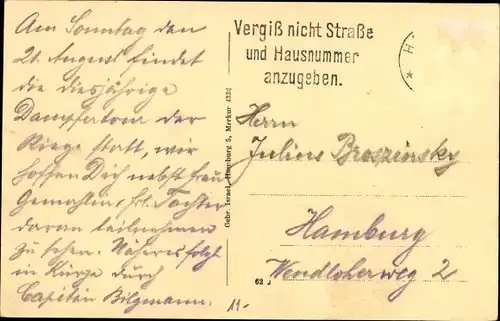 Am Sonntag den
21. August findet
die diesjährige
Dampfertour der
Riege statt, wir
hoffen Dich nebst Frau
Gemahlin u. frl. Tochter
daran teilnehmen
zu sehen. Näheres folgt
in Kürze durch
Capitän Bilgmann.
11.-
Gebr. Israel, Hamburg 5, Merkur 4334
63 J
Vergiß nicht Straße
und Hausnummer
anzugeben.
H
Herrn
Julius Broszinsky
Hamburg
Wendloherweg 2